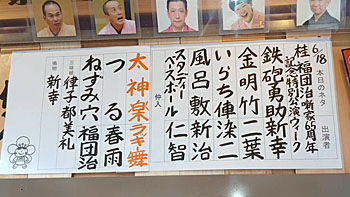 6/18 本日のネタ 出演者
桂福団治噺家65周年
記念特別公演ウィーク
鉄砲勇助 新幸
金明竹 二葉
いらち俥 染二
風呂敷 新治
スタディベースボール 仁智
仲入
太神楽 ラッキー舞
つる 春雨
ねずみ穴 福団治
三味線 律子 都 美札
鳴物 新幸